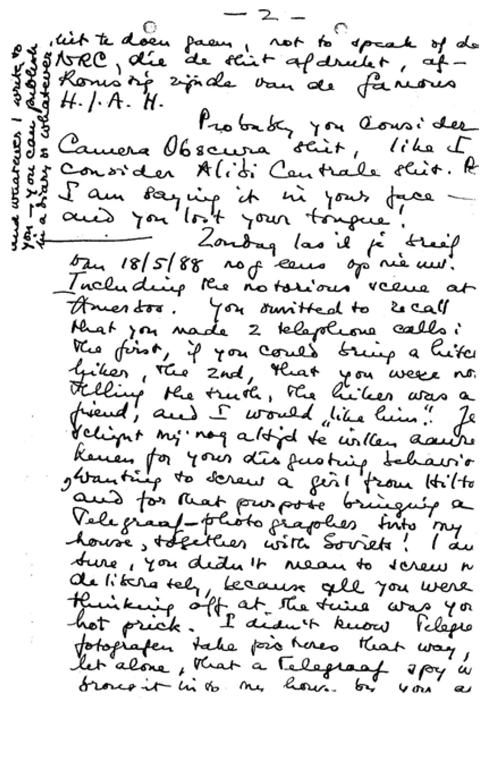 — 2 —
uit te doen gaan, not to speak of de
NRC, die de shit afdrukt, af-
komstig zijnde van de famous
H.J.A.H.
Probably you consider
Camera Obscura shit, like I
consider Alibi Centrale shit.
I am saying it in your face —
and you lost your tongue!
Zondag las ik je brief
van 18/5/88 nog eens opnieuw.
Including the notorious scene at
Amerbos. You omitted to recall
that you made 2 telephone calls:
the first, if you could bring a hitch
hiker, the 2nd, that you were no
telling the truth, the hiker was a
friend, and I would „like him". Je
schijnt mij nog altijd te willen aanre
kenen for your disgusting behavio
wanting to screw a girl from Hilto
and for that purpose bringing a
Telegraaf-photographer into my
house, together with Soviets! I am
sure, you didn't mean to screw m
deliberately, because all you were
thinking off at the time was you
hot prick. I didn't know Telegra
fotografen take pictures that way,
let alone, that a Telegraaf spy w
brought into my house by you a
and whatever I write to
you — you can publish
in a diary or whatever